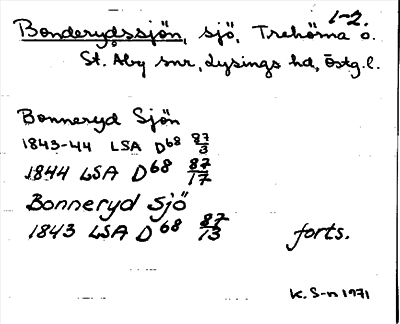 1-2.
Bonderydssjön, sjö, Trehörna o.
St. Åby snr, Lysings hd, Östg.l.
Bonneryd Sjön
1843-44 LSA D68 87/3
1844 LSA D68 87/17
Bonneryd Sjö
1843 LSA D68 87/13 forts.
K. S-n 1971